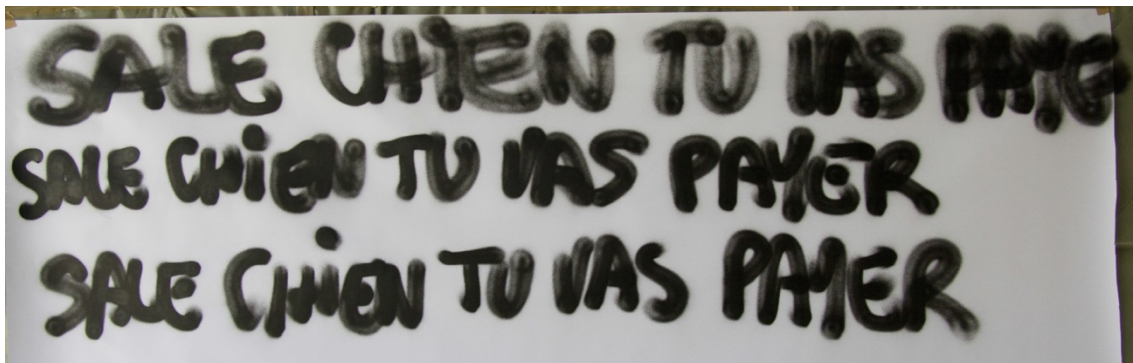 SALE CHIEN TU VAS PAYE
SALE CHiEN TU VAS PAYER
SALE CHiEN TU VAS PAYER